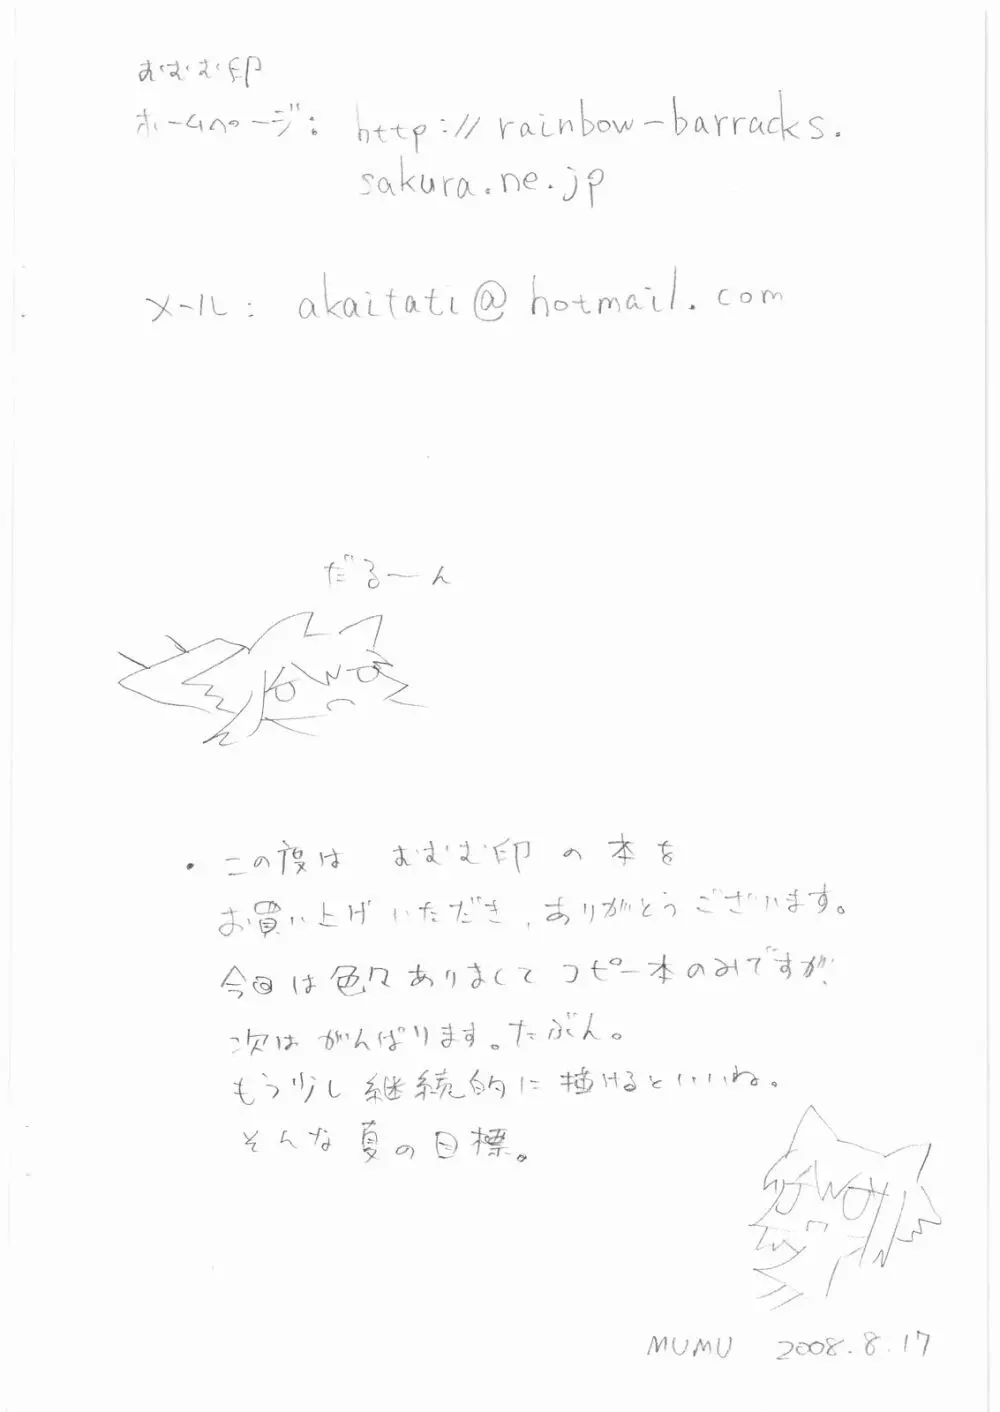 おむむ印
ホームページ: http://rainbow-barracks.
sakura.ne.jp
メール: akaitati@hotmail.com
だる〜ん
・この度は おむむ印の本を
お買い上げいただき、ありがとうございます。
今回は色々ありましてコピー本のみですが、
次はがんばります。たぶん。
もう少し継続的に描けるといいね。
そんな夏の目標。
MUMU 2008.8.17